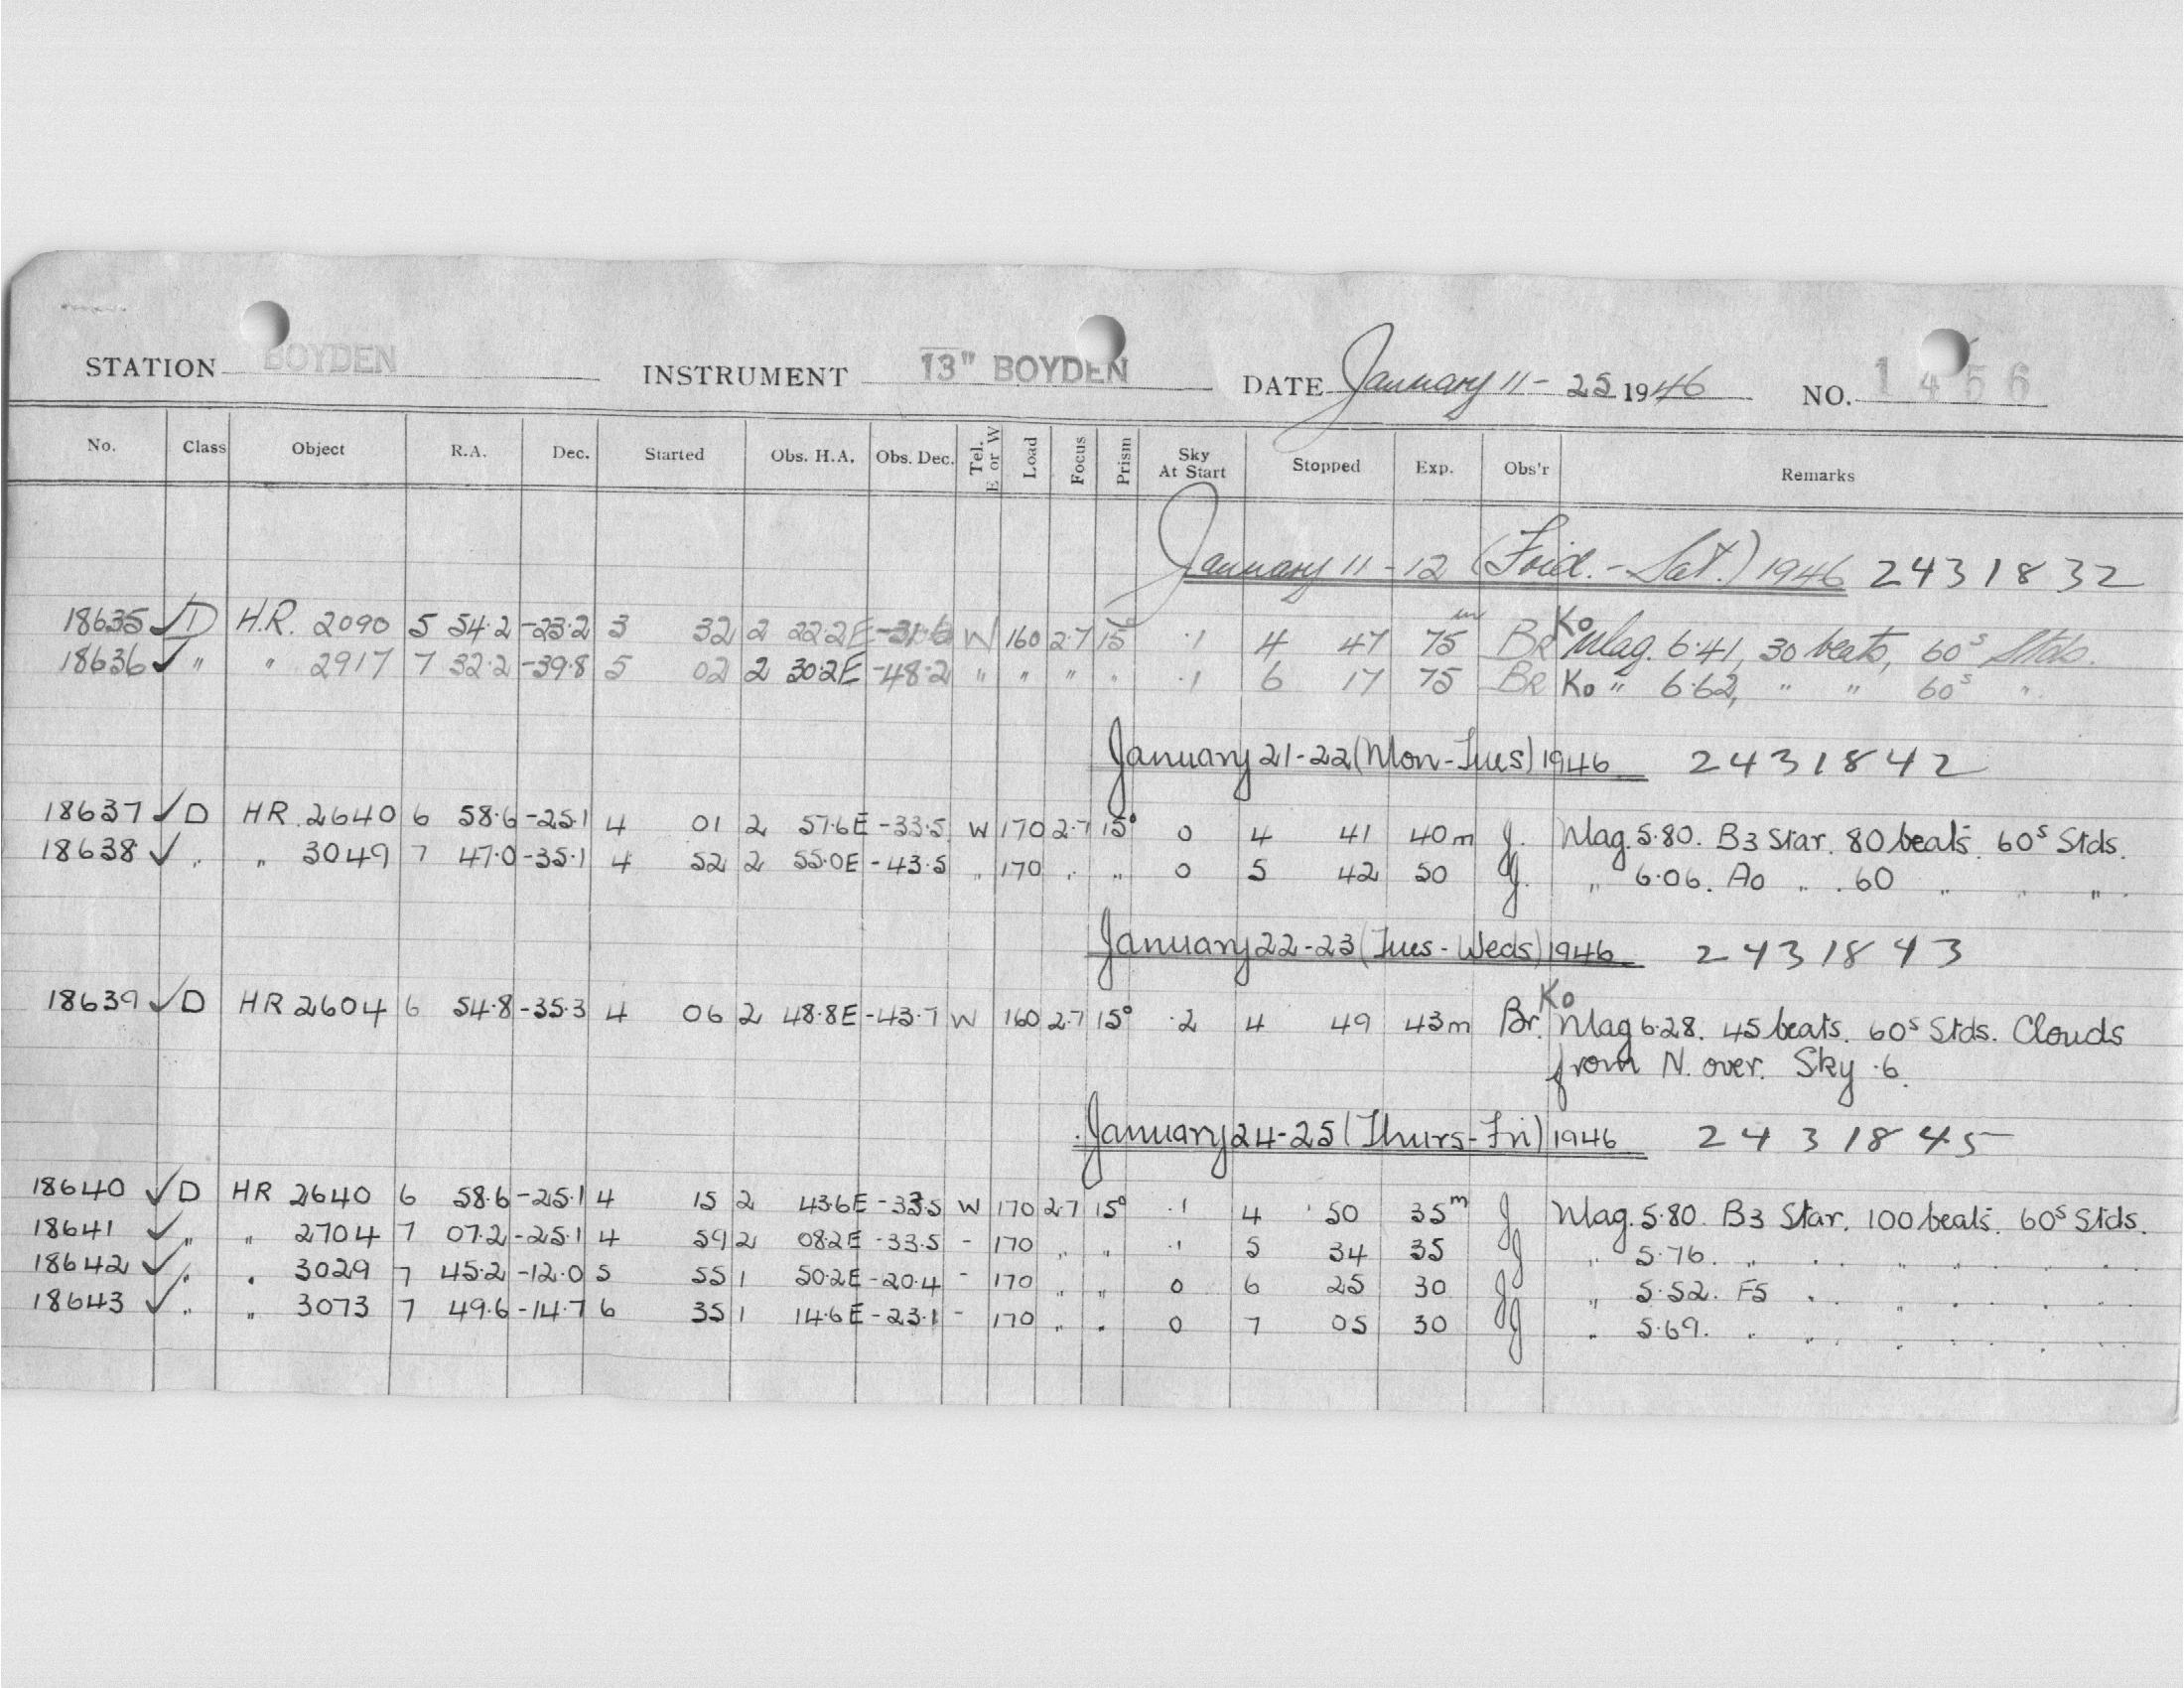 STATION BOYDEN INSTRUMENT 13" BOYDEN DATE January 11 - 25 1946 NO. 1456
No. Class Object R.A. Dec. Started Obs. H.A. Obs. Dec. Tel. E or W Load Focus Prism Sky At Start Stopped Exp. Obs'r Remarks
January 11 - 12 (Frid. - Sat.) 1946 2431832
18635 ✓ D H.R. 2090 5 54.2 -23.2 3 32 2 22.2E -31.6 W 160 2.7 15° .1 4 47 75m BR K0 Mag. 6.41, 30 beats, 60s Stds.
18636 ✓ " " 2917 7 32.2 -39.8 5 02 2 30.2E -48.2 " " " " .1 6 17 75 BR K0 " 6.62, " " 60s ".
January 21-22 (Mon-Tues) 1946 2431842
18637 ✓ D HR 2640 6 58.6 -25.1 4 01 2 57.6E -33.5 W 170 2.7 15° 0 4 41 40m J. Mag. 5.80. B3 Star. 80 beats. 60s Stds.
18638 ✓ " " 3049 7 47.0 -35.1 4 52 2 55.0E -43.5 " 170 " " 0 5 42 50 J. " 6.06. A0 " . 60 " " " .
January 22-23 (Tues - Weds) 1946 2431843
18639 ✓ D HR 2604 6 54.8 -35.3 4 06 2 48.8E -43.7 W 160 2.7 15° .2 4 49 43m Br. K0 Mag 6.28. 45 beats. 60s Stds. Clouds
from N. over. Sky .6.
January 24-25 (Thurs-Fri) 1946 2431845
18640 ✓ D HR 2640 6 58.6 -25.1 4 15 2 43.6E -33.5 W 170 2.7 15° .1 4 50 35m J Mag. 5.80. B3 Star. 100 beats. 60s Stds.
18641 ✓ " " 2704 7 07.2 -25.1 4 59 2 08.2E -33.5 - 170 " " .1 5 34 35 J " 5.76. " " " " " "
18642 ✓ " " 3029 7 45.2 -12.0 5 55 1 50.2E -20.4 - 170 " " 0 6 25 30 J " 5.52. F5 " " " " "
18643 ✓ " " 3073 7 49.6 -14.7 6 35 1 14.6E -23.1 - 170 " " 0 7 05 30 J " 5.69. " " " " " "